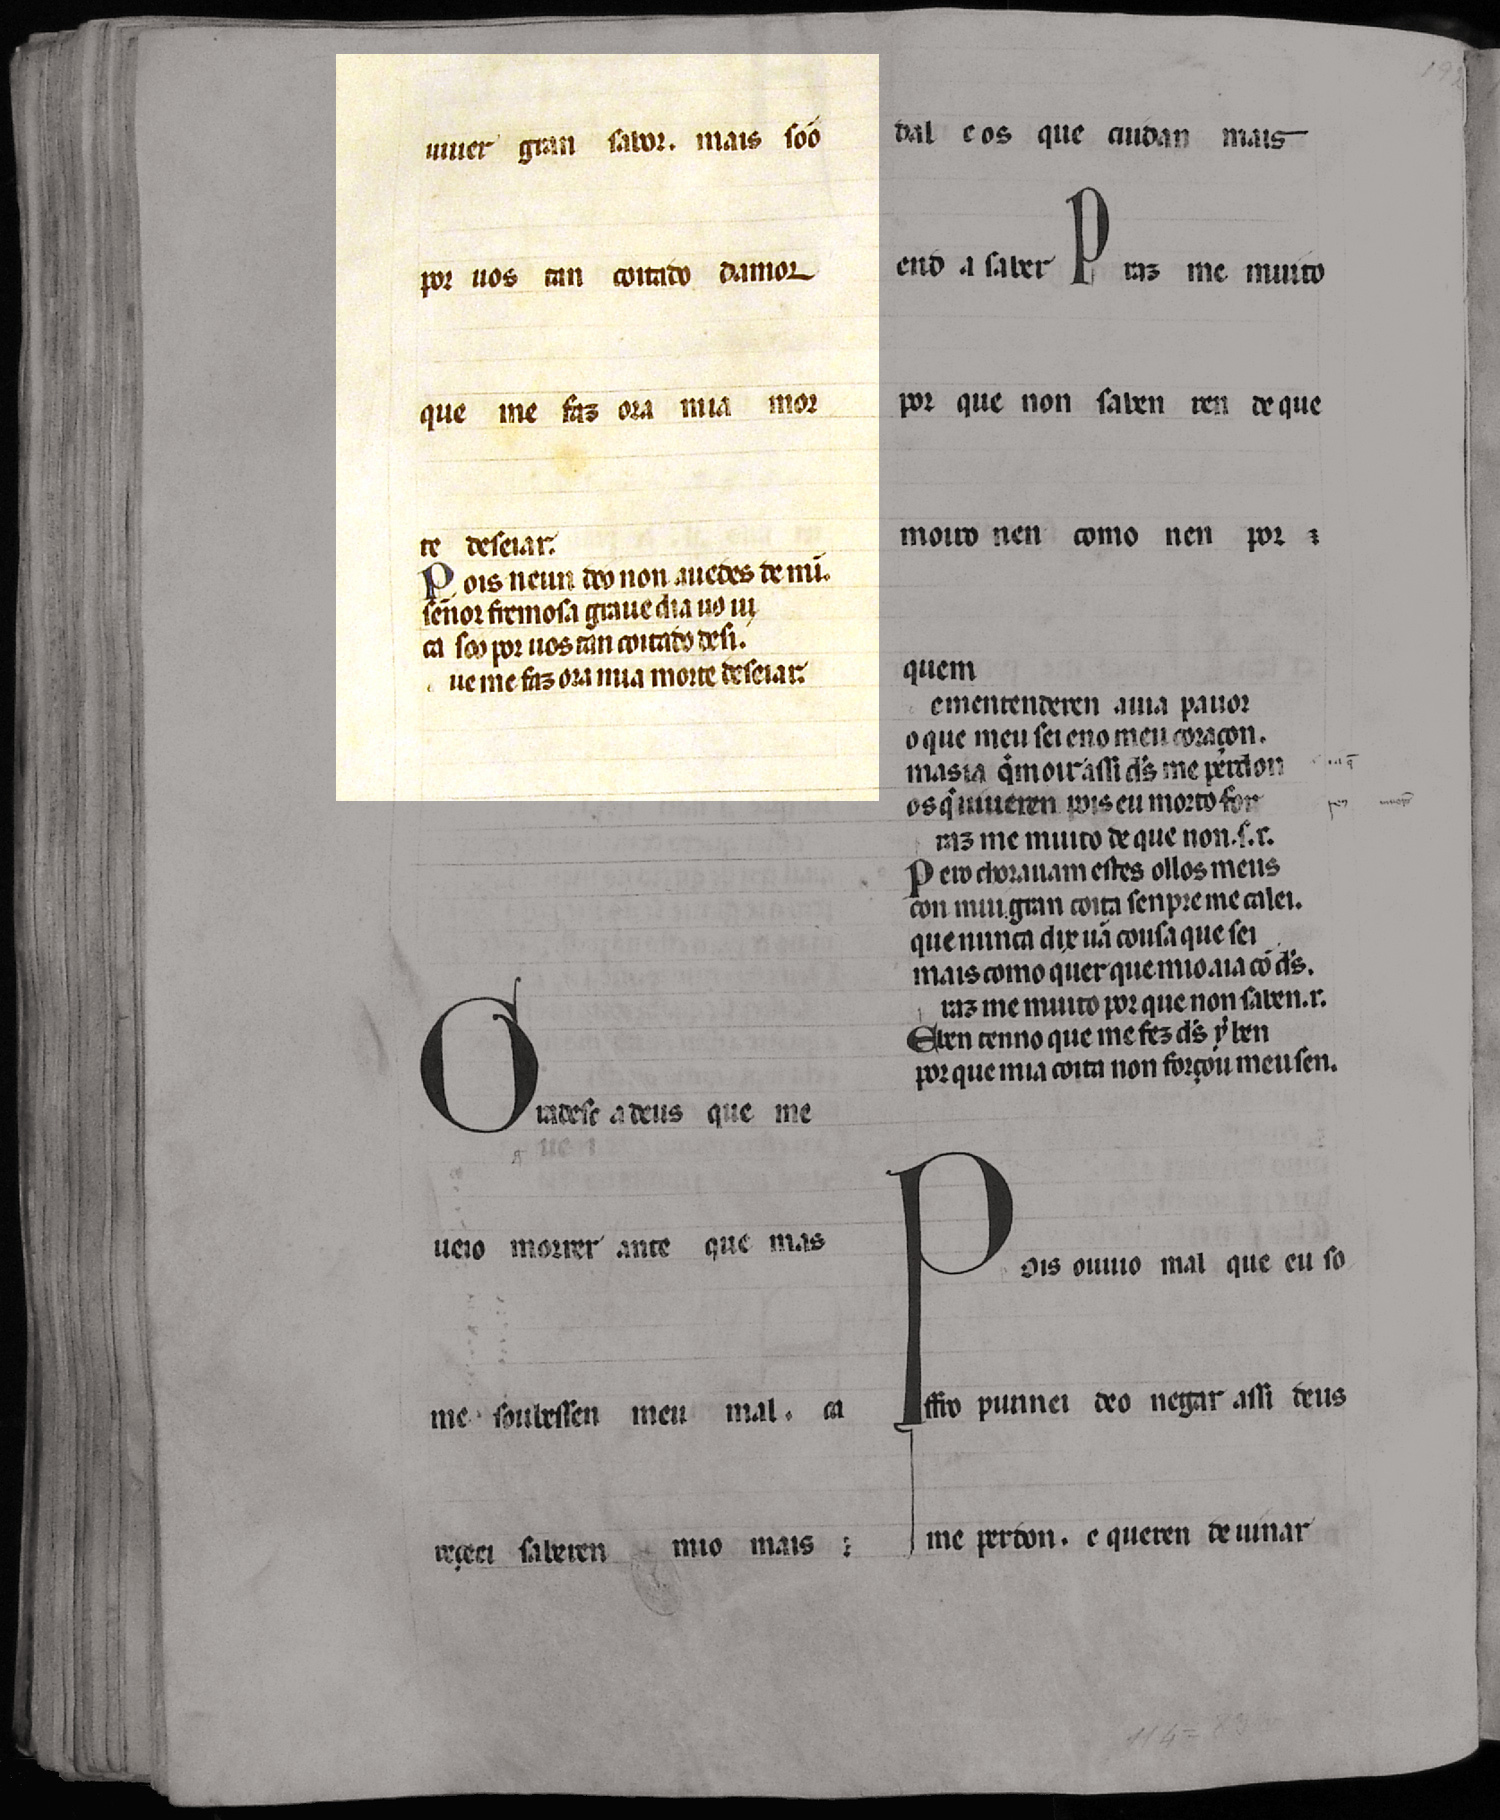 uiuer gran sabor. mais soó
por uos tan coitado damor
que me faz ora mia mor
te deseiar.
Pois neun doo non auedes de mi.
sēnor fremosa graue dia uo ui
ca soo por uos tan coitado desi.
ue me faz ora mia morte deseiar.
Gradesc a deus que me
ueio morrer ante que mas
me soubessen meu mal. ca
reçeei saberen mio mais
dal e os que cuidan mais
end a saber Praz me muito
por que non saben ren de que
moiro nen como nen por
quem
ementenderen auia pauor
o que meu sei eno meu coraçon.
mas ia q̄ moir assi d's me perdon
os q̄ uiueren pois eu morto for
raz me muito de que non.s.r.
Pero chorauam estes ollos meus
con mui gran coita senpre me calei.
que nunca dix uā cousa que sei
mais como quer que mio aia cō d's.
raz me muito por que non saben.r.
E ben tenno que me fez d's y ben
por que mia coita non forçou meu sen.
Pois ouuio mal que eu so
ffro punnei deo negar assi deus
me perdon. e queren deuinar